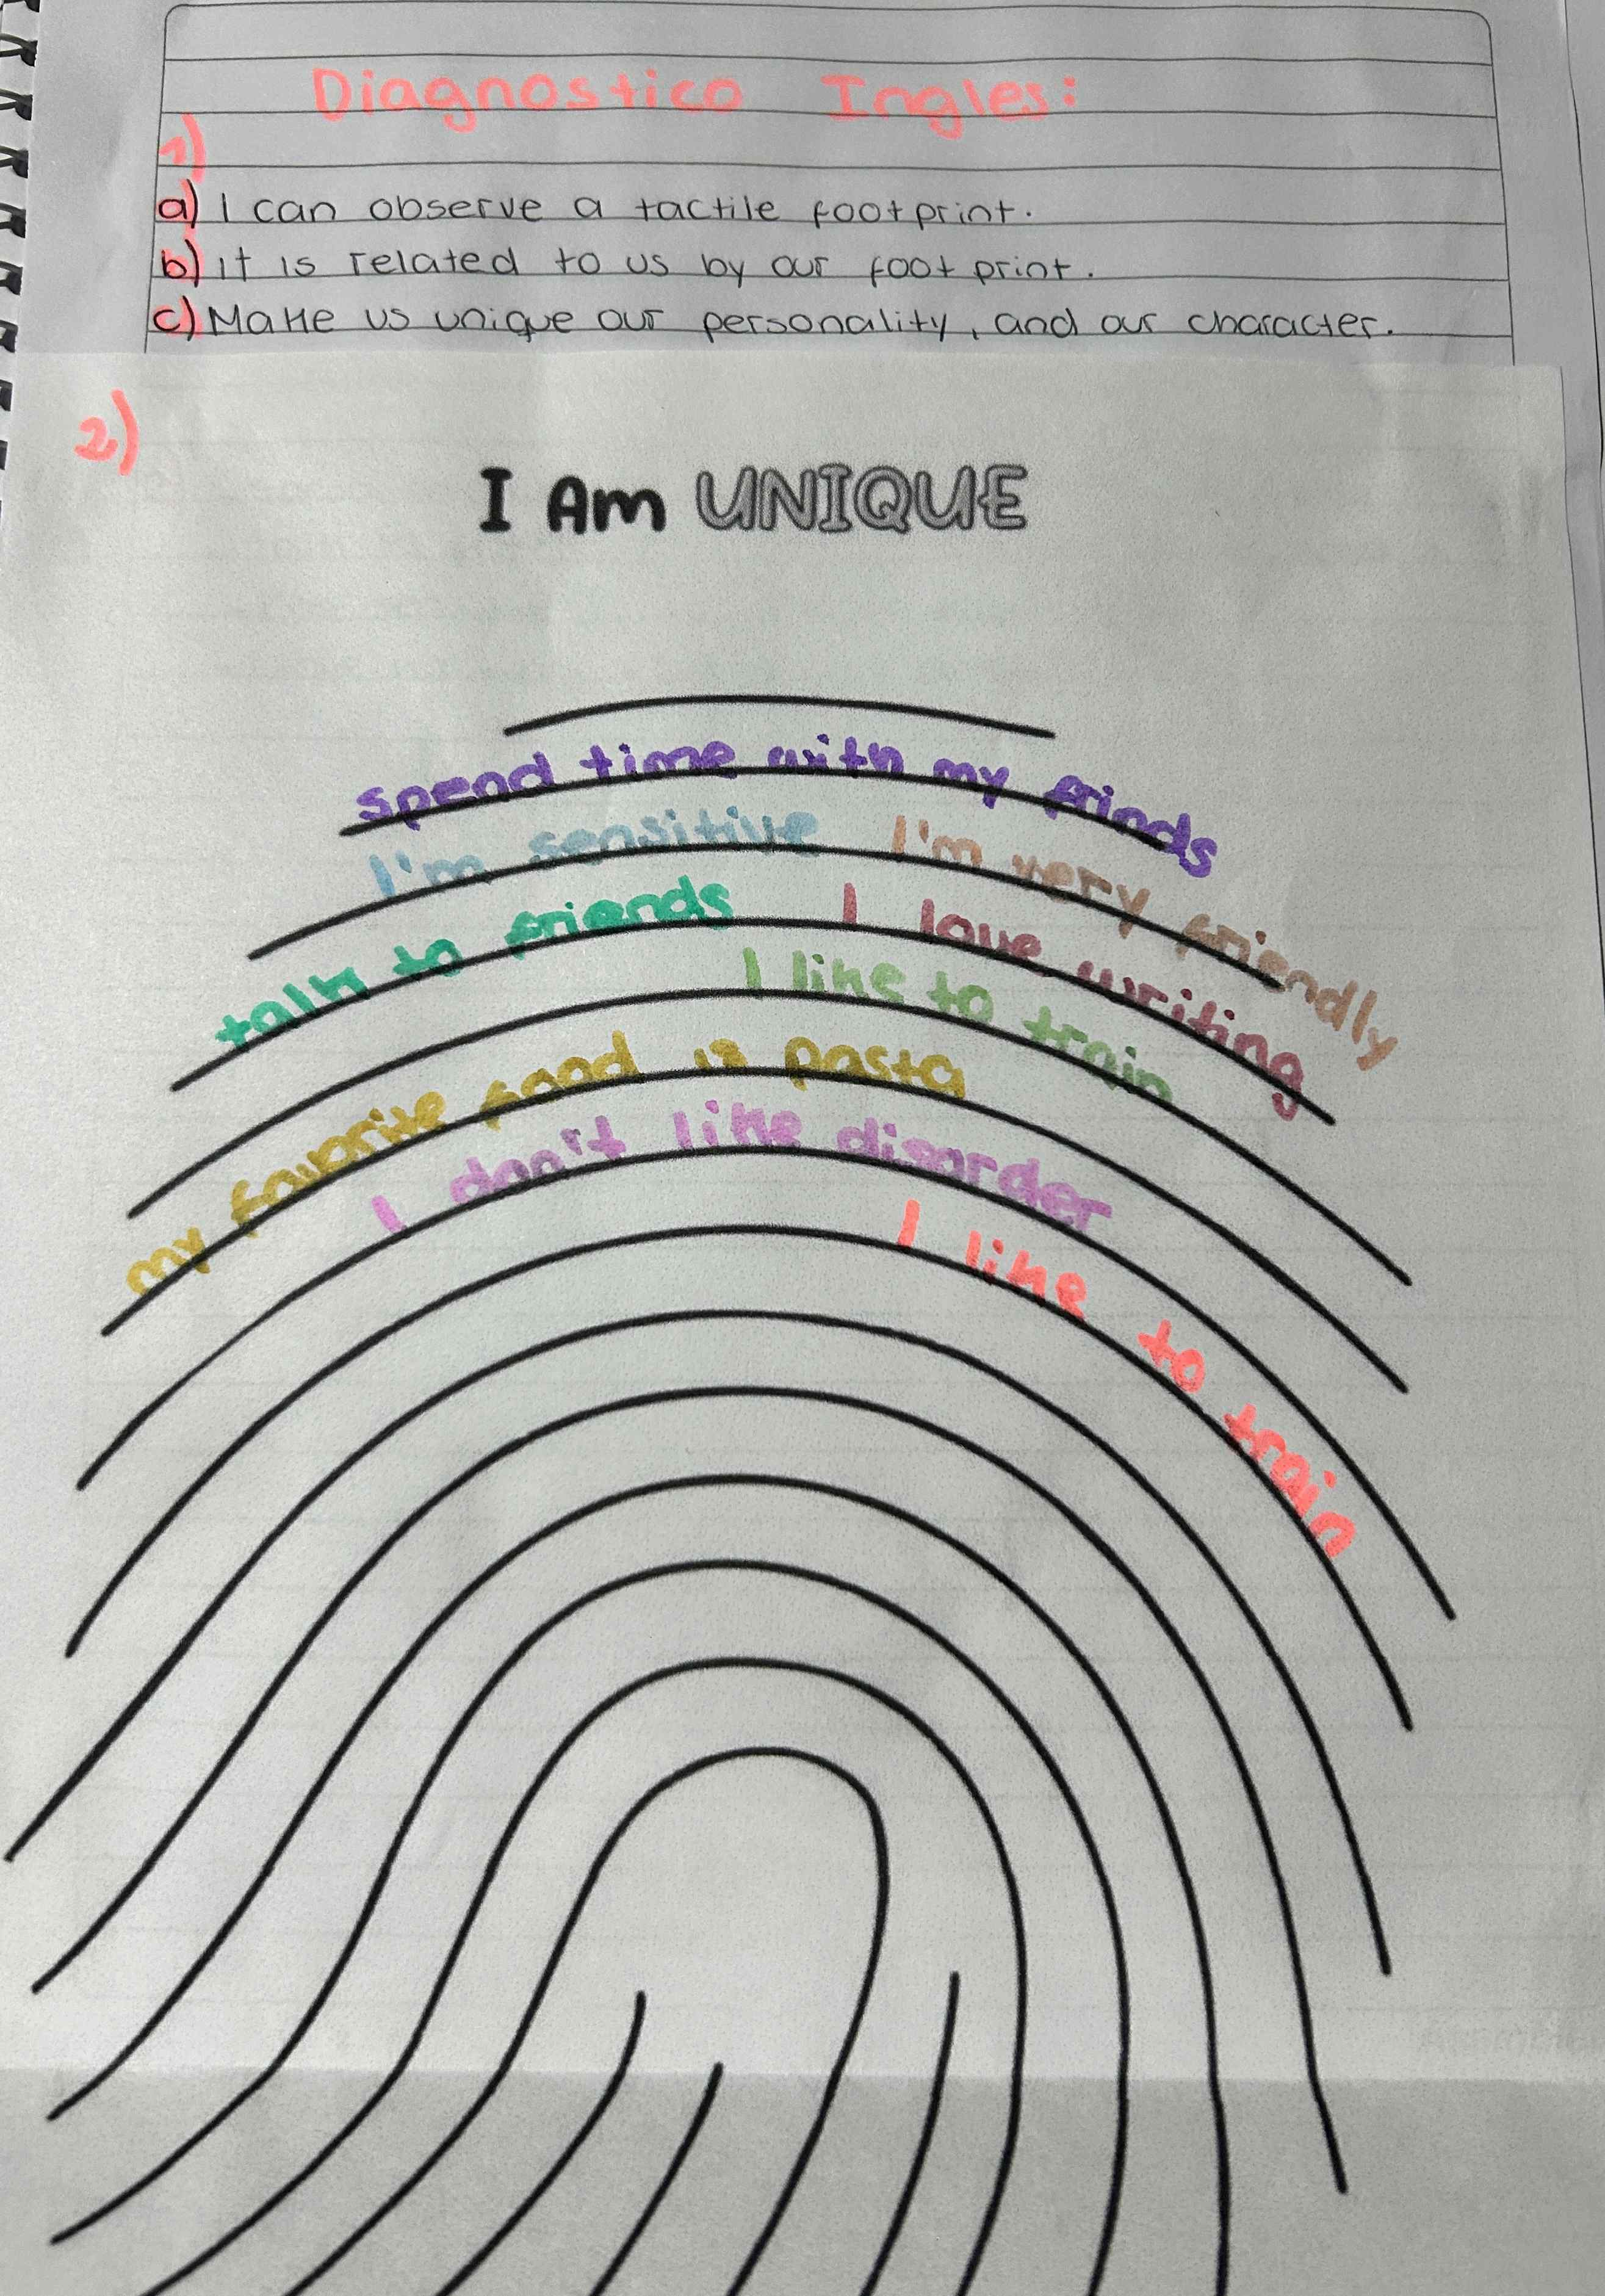 Diagnostico Ingles:
1)
a) I can observe a tactile footprint.
b) it is related to us by our foot print.
c) Make us unique our personality, and our character.
2)
I Am UNIQUE
spend time with my frinds
I'm sensitive I'm very friendly
talk to friends I love writing
I like to train
my favorite food is pasta
I don't like disorder
I like to train